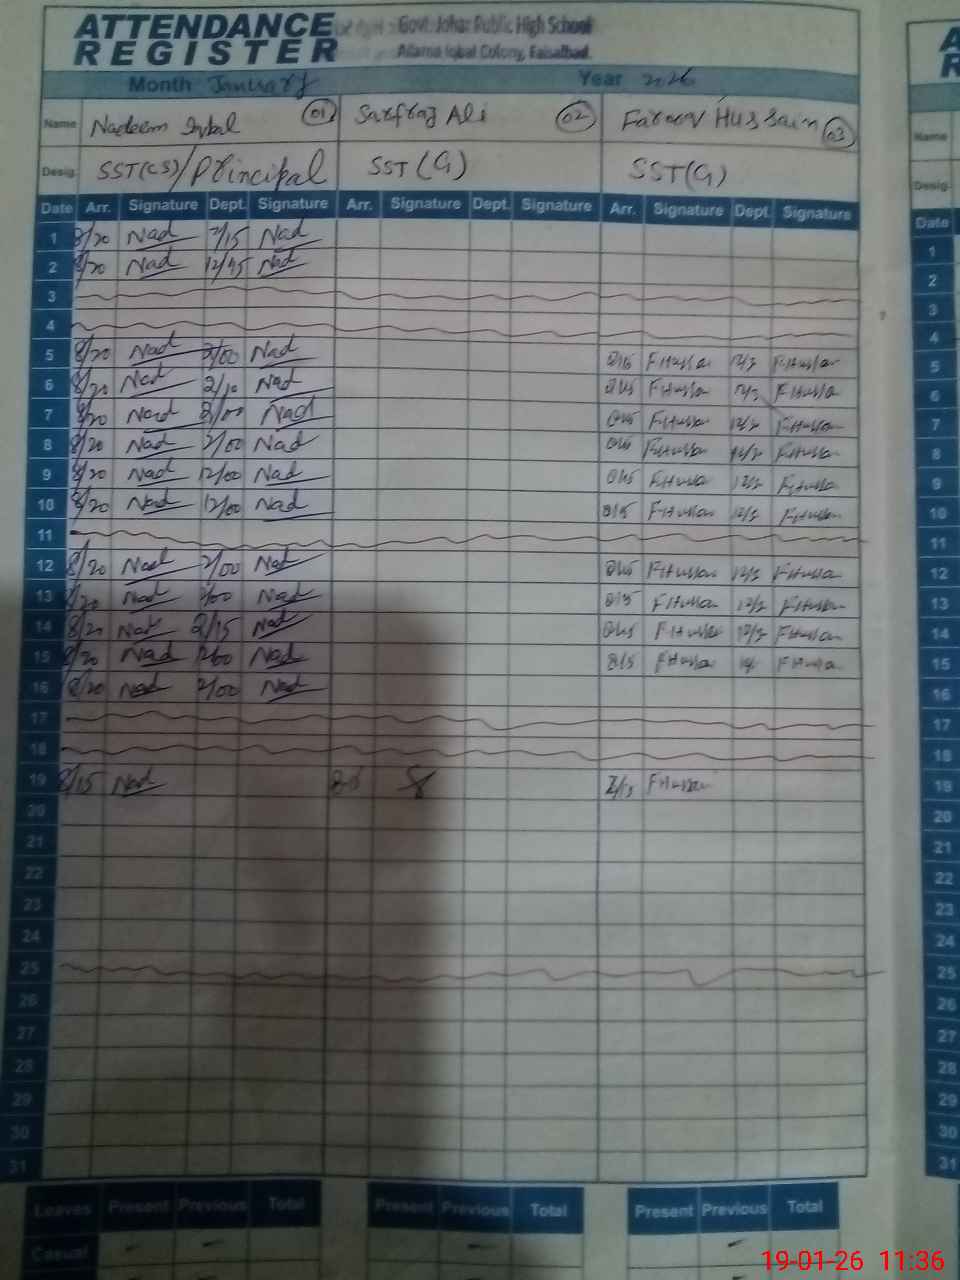 ATTENDANCE REGISTER
Govt. Johar Public High School
Allama Iqbal Colony, Faisalbad.
Month January Year 2026
Name Nadeem Iqbal 01 Sarfraz Ali 02 Farooq Hussain 03
Desig. SST(CS)/Principal SST(G) SST(G)
Date Arr. Signature Dept. Signature Arr. Signature Dept. Signature Arr. Signature Dept. Signature
1 8/20 Nad 2/15 Nad
2 8/20 Nad 12/45 Nad
3
4
5 8/20 Nad 2/00 Nad FHussan FHussan
6 8/20 Nad 2/10 Nad FHussan FHussan
7 8/20 Nad 2/00 Nad FHussan FHussan
8 8/20 Nad 2/00 Nad FHussan FHussan
9 8/20 Nad 12/00 Nad FHussan FHussan
10 8/20 Nad 12/00 Nad FHussan FHussan
11
12 8/20 Nad 2/00 Nad FHussan FHussan
13 8/20 Nad 2/00 Nad FHussan FHussan
14 8/20 Nad 2/15 Nad FHussan FHussan
15 8/20 Nad Nad FHussan FHussan
16 8/20 Nad 2/00 Nad
17
18
19 8/15 Nad FHussan
20
21
22
23
24
25
26
27
28
29
30
31
Leaves Present Previous Total Present Previous Total Present Previous Total
Casual
Name
Desig.
Date
1
2
3
4
5
6
7
8
9
10
11
12
13
14
15
16
17
18
19
20
21
22
23
24
25
26
27
28
29
30
31
19-01-26 11:36